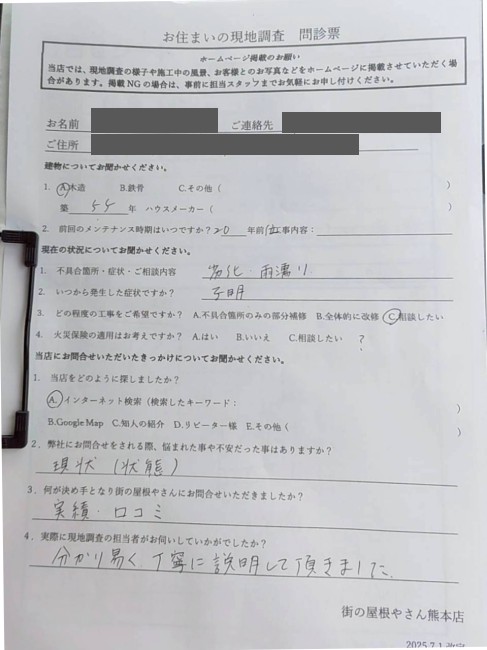 お住まいの現地調査　問診票
ホームページ掲載のお願い
当店では、現地調査の様子や施工中の風景、お客様とのお写真などをホームページに掲載させていただく場
合があります。掲載NGの場合は、事前に担当スタッフまでお気軽にお申し付けください。
お名前　ご連絡先
ご住所
建物についてお聞かせください。
1. A.木造　B.鉄骨　C.その他（　）
築 54 年　ハウスメーカー（　）
2. 前回のメンテナンス時期はいつですか？20 年前（工事内容：
現在の状況についてお聞かせください。
1. 不具合箇所・症状・ご相談内容　劣化・雨漏り
2. いつから発生した症状ですか？　不明
3. どの程度の工事をご希望ですか？ A.不具合箇所のみの部分補修 B.全体的に改修 C.相談したい
4. 火災保険の適用はお考えですか？ A.はい　B.いいえ　C.相談したい　?
当店にお問合せいただいたきっかけについてお聞かせください。
1. 当店をどのように探しましたか？
A.インターネット検索（検索したキーワード：　）
B.Google Map　C.知人の紹介　D.リピーター様　E.その他（　）
2. 弊社にお問合せをされる際、悩まれた事や不安だった事はありますか？
現状（状態）
3. 何が決め手となり街の屋根やさんにお問合せいただきましたか？
実績・口コミ
4. 実際に現地調査の担当者がお伺いしていかがでしたか？
分かり易く丁寧に説明して頂きました
街の屋根やさん熊本店
2025.7.1 改定